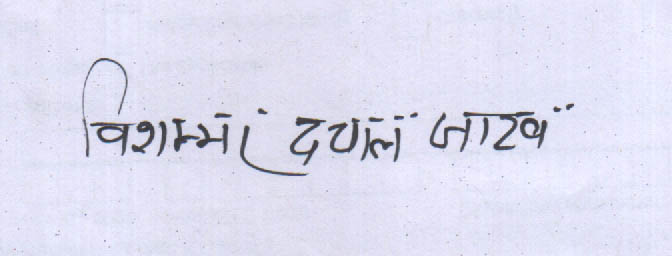 विशम्भर दयाल जाटव